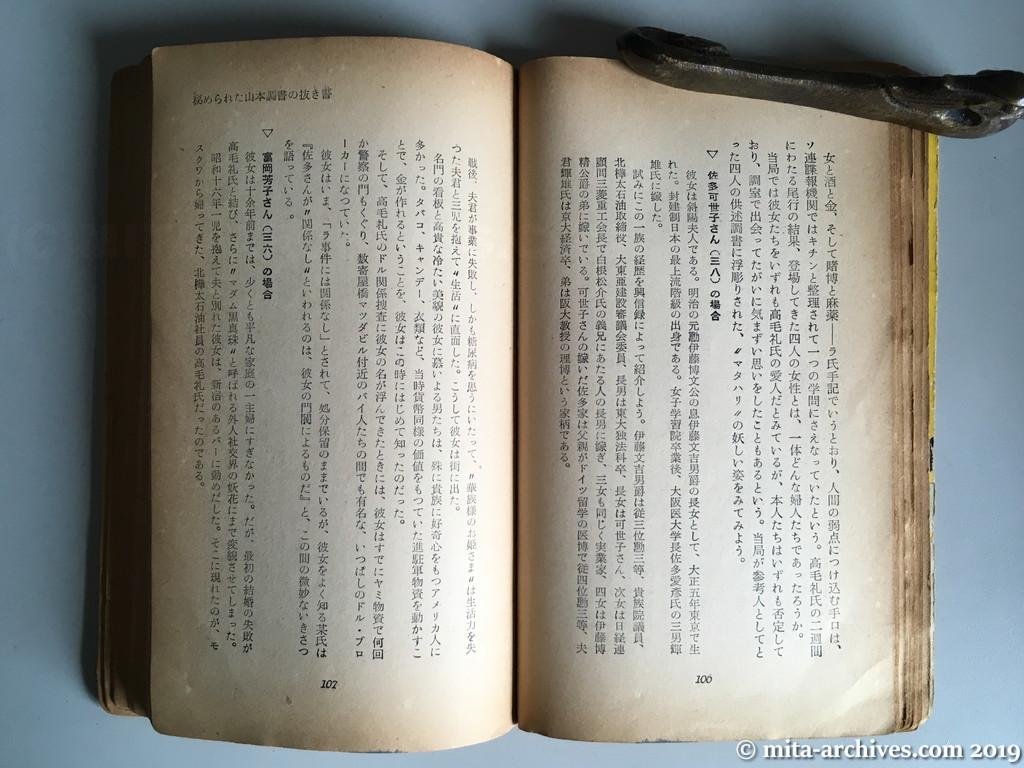 女と酒と金、そして賭博と麻薬――ラ氏手記でいうとおり、人間の弱点につけ込む手口は、
ソ連諜報機関ではキチンと整理されて一つの学問にさえなっていたという。高毛礼氏の二週間
にわたる尾行の結果、登場してきた四人の女性とは、一体どんな婦人たちであったろうか。
当局では彼女たちをいずれも高毛礼氏の愛人だとみているが、本人たちはいずれも否定して
おり、調室で出会ってたがいに気まずい思いをしたこともあるという。当局が参考人としてと
った四人の供述調書に浮彫りされた、〝マタハリ〟の妖しい姿をみてみよう。
▽ 佐多可世子さん(三八)の場合
彼女は斜陽夫人である。明治の元勲伊藤博文公の息伊藤文吉男爵の長女として、大正五年東京で生
れた。封建制日本の最上流階級の出身である。女子学習院卒業後、大阪医大学長佐多愛彦氏の三男輝
雄氏に嫁した。
試みにこの一族の経歴を興信録によって紹介しよう。伊藤文吉男爵は従三位勲三等、貴族院議員、
北樺太石油取締役、大東亜建設審議会委員、長男は東大独法科卒、長女は可世子さん、次女は日経連
顧問三菱重工会長で白根松介氏の義兄にあたる人の長男に嫁ぎ、三女も同じく実業家、四女は伊藤博
精公爵の弟に嫁いでいる。可世子さんの嫁いだ佐多家は父親がドイツ留学の医博で従四位勲三等、夫
君輝雄氏は京大経済卒、弟は阪大教授の理博という家柄である。
106
秘められた山本調書の抜き書
戦後、夫君が事業に失敗し、しかも糖尿病を患うにいたって、〝華族様のお姫さま〟は生活力を失
つた夫君と三児を抱えて〝生活〟に直面した。こうして彼女は街に出た。
名門の看板と高貴な冷たい美貌の彼女に慕いよる男たちは、殊に貴族に好奇心をもつアメリカ人に
多かった。タバコ、キャンデー、衣類など、当時貨幣同様の価値をもつていた進駐軍物資を動かすこ
とで、金が作れるということを、彼女はこの時にはじめて知ったのだった。
そして、高毛礼氏のドル関係捜査に彼女の名が浮んできたときには、彼女はすでにヤミ物資で何回
か警察の門もくぐり、数寄屋橋マツダビル付近のバイ人たちの間でも有名な、いつぱしのドル・ブロ
ーカーになつていた。
彼女はいま、「ラ事件には関係なし」とされて、処分保留のままでいるが、彼女をよく知る某氏は
『佐多さんが〝関係なし〟といわれるのは、彼女の門閥によるものだ』と、この間の微妙ないきさつ
を語っている。
▽ 富岡芳子さん(三六)の場合
彼女は十余年前までは、少くとも平凡な家庭の一主婦にすぎなかった。だが、最初の結婚の失敗が
高毛礼氏と結び、さらに〝マダム黒真珠〟と呼ばれる外人社交界の妖花にまで変貌させてしまった。
昭和十六年一児を抱えて夫と別れた彼女は、新宿のあるバーに勤めだした。そこに現れたのが、モ
スクワから帰ってきた、北樺太石油社員の高毛礼氏だったのである。
107
© mita-archives.com 2019